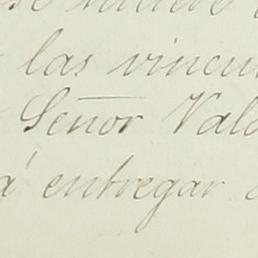 las vincu
Señor Vald
á entregar